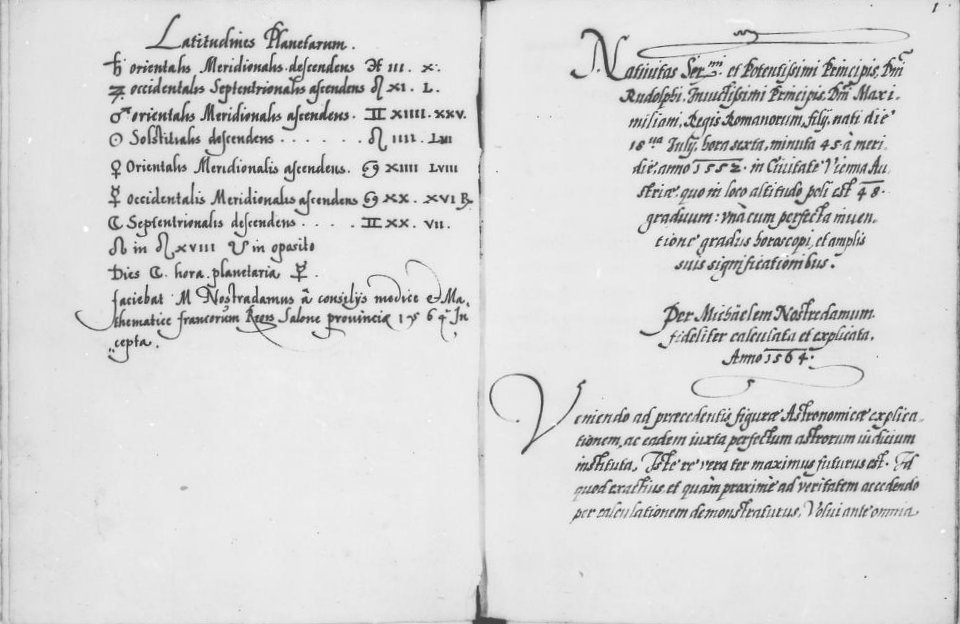 Latitudines Planetarum.
♄ orientalis Meridionalis descendens ♓ III. X.
♃ occidentalis Septentrionalis ascendens ♌ XI. L.
♂ orientalis Meridionalis ascendens. ♊ XIIII. XXV.
☉ Solstitialis descendens . . . . . . ♌ IIII. LVI
♀ Orientalis Meridionalis ascendens. ♋ XIIII LVIII
☿ Occidentalis Meridionalis ascendens ♋ XX. XVI ℞.
☾ Septentrionalis descendens . . . . ♊ XX. VII.
☊ in ♌ XVIII ☋ in oposito
Dies ☾. hora planetaria ☿.
faciebat M Nostradamus à consilijs medice et Ma,
thematice francorum Regis Salone provinciæ 1564 In
cepta.
1
Natiuitas Ser.mi et Potentissimi Principis, Dn̄i
Rudolphi, Inuictissimi Principis, Dn̄i Maxi-
miliani, Regis Romanorum, filij, nati die
18ua Julij, hora sexta, minuta 45 à meri
die, anno 1552. in Ciuitate Vienna Au
striæ, quo in loco altitudo poli est 48.
graduum: vnà cum perfecta inuen-
tione gradus horoscopi, et amplis
suis significationibus.
Per Michaëlem Nostredamum
fideliter calculata et explicata.
Anno 1564.
Veniendo ad præcedentis figuræ Astronomicæ explica-
tionem, ac eadem iuxta perfectum astrorum iudicium
instituta, Iste re vera ter maximus futurus est. Id
quod exactius et quàm proximè ad veritatem accedendo
per calculationem demonstraturus, Volui ante omnia